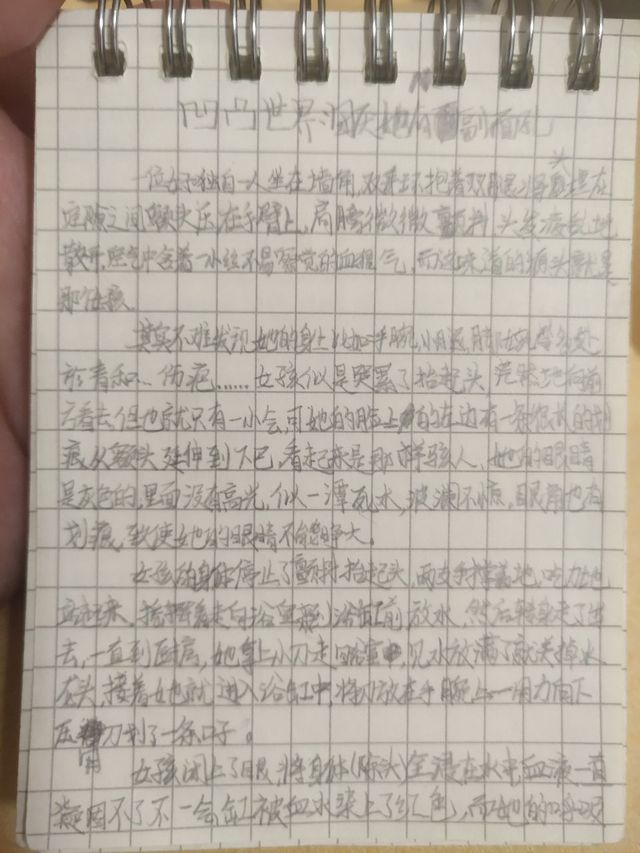 凹凸世界:
一位女孩独自一人坐在墙角,双手环抱着双腿,将头埋在
之间 在手臂上,肩膀微微颤抖,头发凌乱地
散开,空气中含着一丝不易察觉的血腥气,而 的 头就是
那女孩
其实不难发现她的身上比如手腕,小腿, 等多处
青 和 伤疤……女孩似是哭累了抬起头,茫然地向前
看去但也就只有一小会,可她的脸上 的左边有一条 的划
痕从额头延伸到下巴,看起来是那样骇人,她的眼睛
是灰色的,里面没有高光,似一潭死水,波澜不惊,眼角也有
划痕,致使她的眼睛不能睁大。
女孩的身体停止了颤抖抬起头,两支手撑着地,吃力地
站起来,摇摇 走向浴室 浴缸前放水,然后转身走了出
去,一直到厨房,她拿上小刀走回浴室中,见水放满了就关掉水
龙头,接着她就进入浴缸中,将刀放在手腕上一用力向下
压 刀划了一条口子。
女孩闭上了眼,将身体(除头)全浸在水中,血液一直
凝固不了不一会缸被血水染上了红色,而她的呼吸